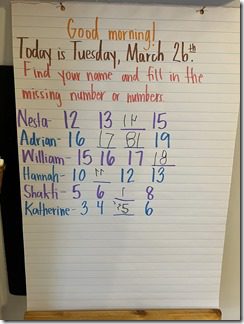 Good morning!
Today is Tuesday, March 26th.
Find your name and fill in the
missing number or numbers.
Nesta- 12 13 14 15
Adrian- 16 17 81 19
William- 15 16 17 18
Hannah- 10 11 12 13
Shakti- 5 6 8
Katherine- 3 4 5 6